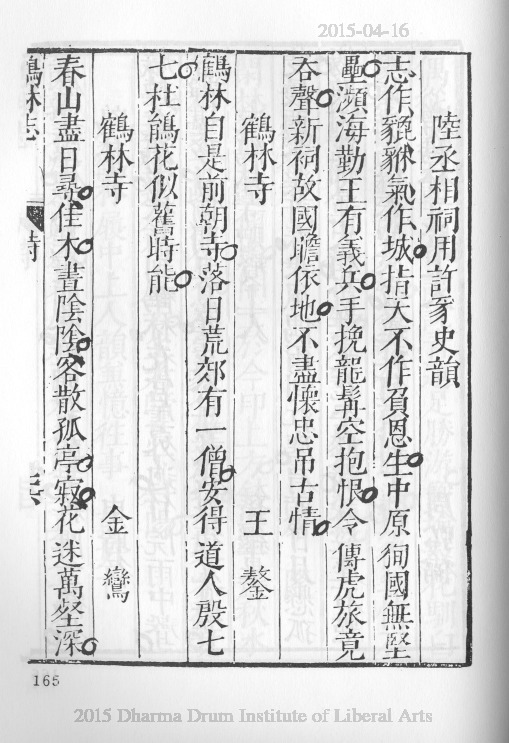 2015-04-16
陸丞相祠用許豸史韻
志作貔貅氣作城指天不作負恩生中原狥國無堅
壘瀕海勤王有義兵手挽龍髯空抱恨令傳虎旅竟
吞聲新祠故國瞻依地不盡懷忠吊古情
鶴林寺 王鏊
鶴林自是前朝寺落日荒郊有一僧安得道人殷七
七杜鵑花似舊時能
鶴林寺 金鸞
春山盡日尋佳木晝陰陰客散孤亭寂花迷萬壑深
鶴林志 詩
165
2015 Dharma Drum Institute of Liberal Arts